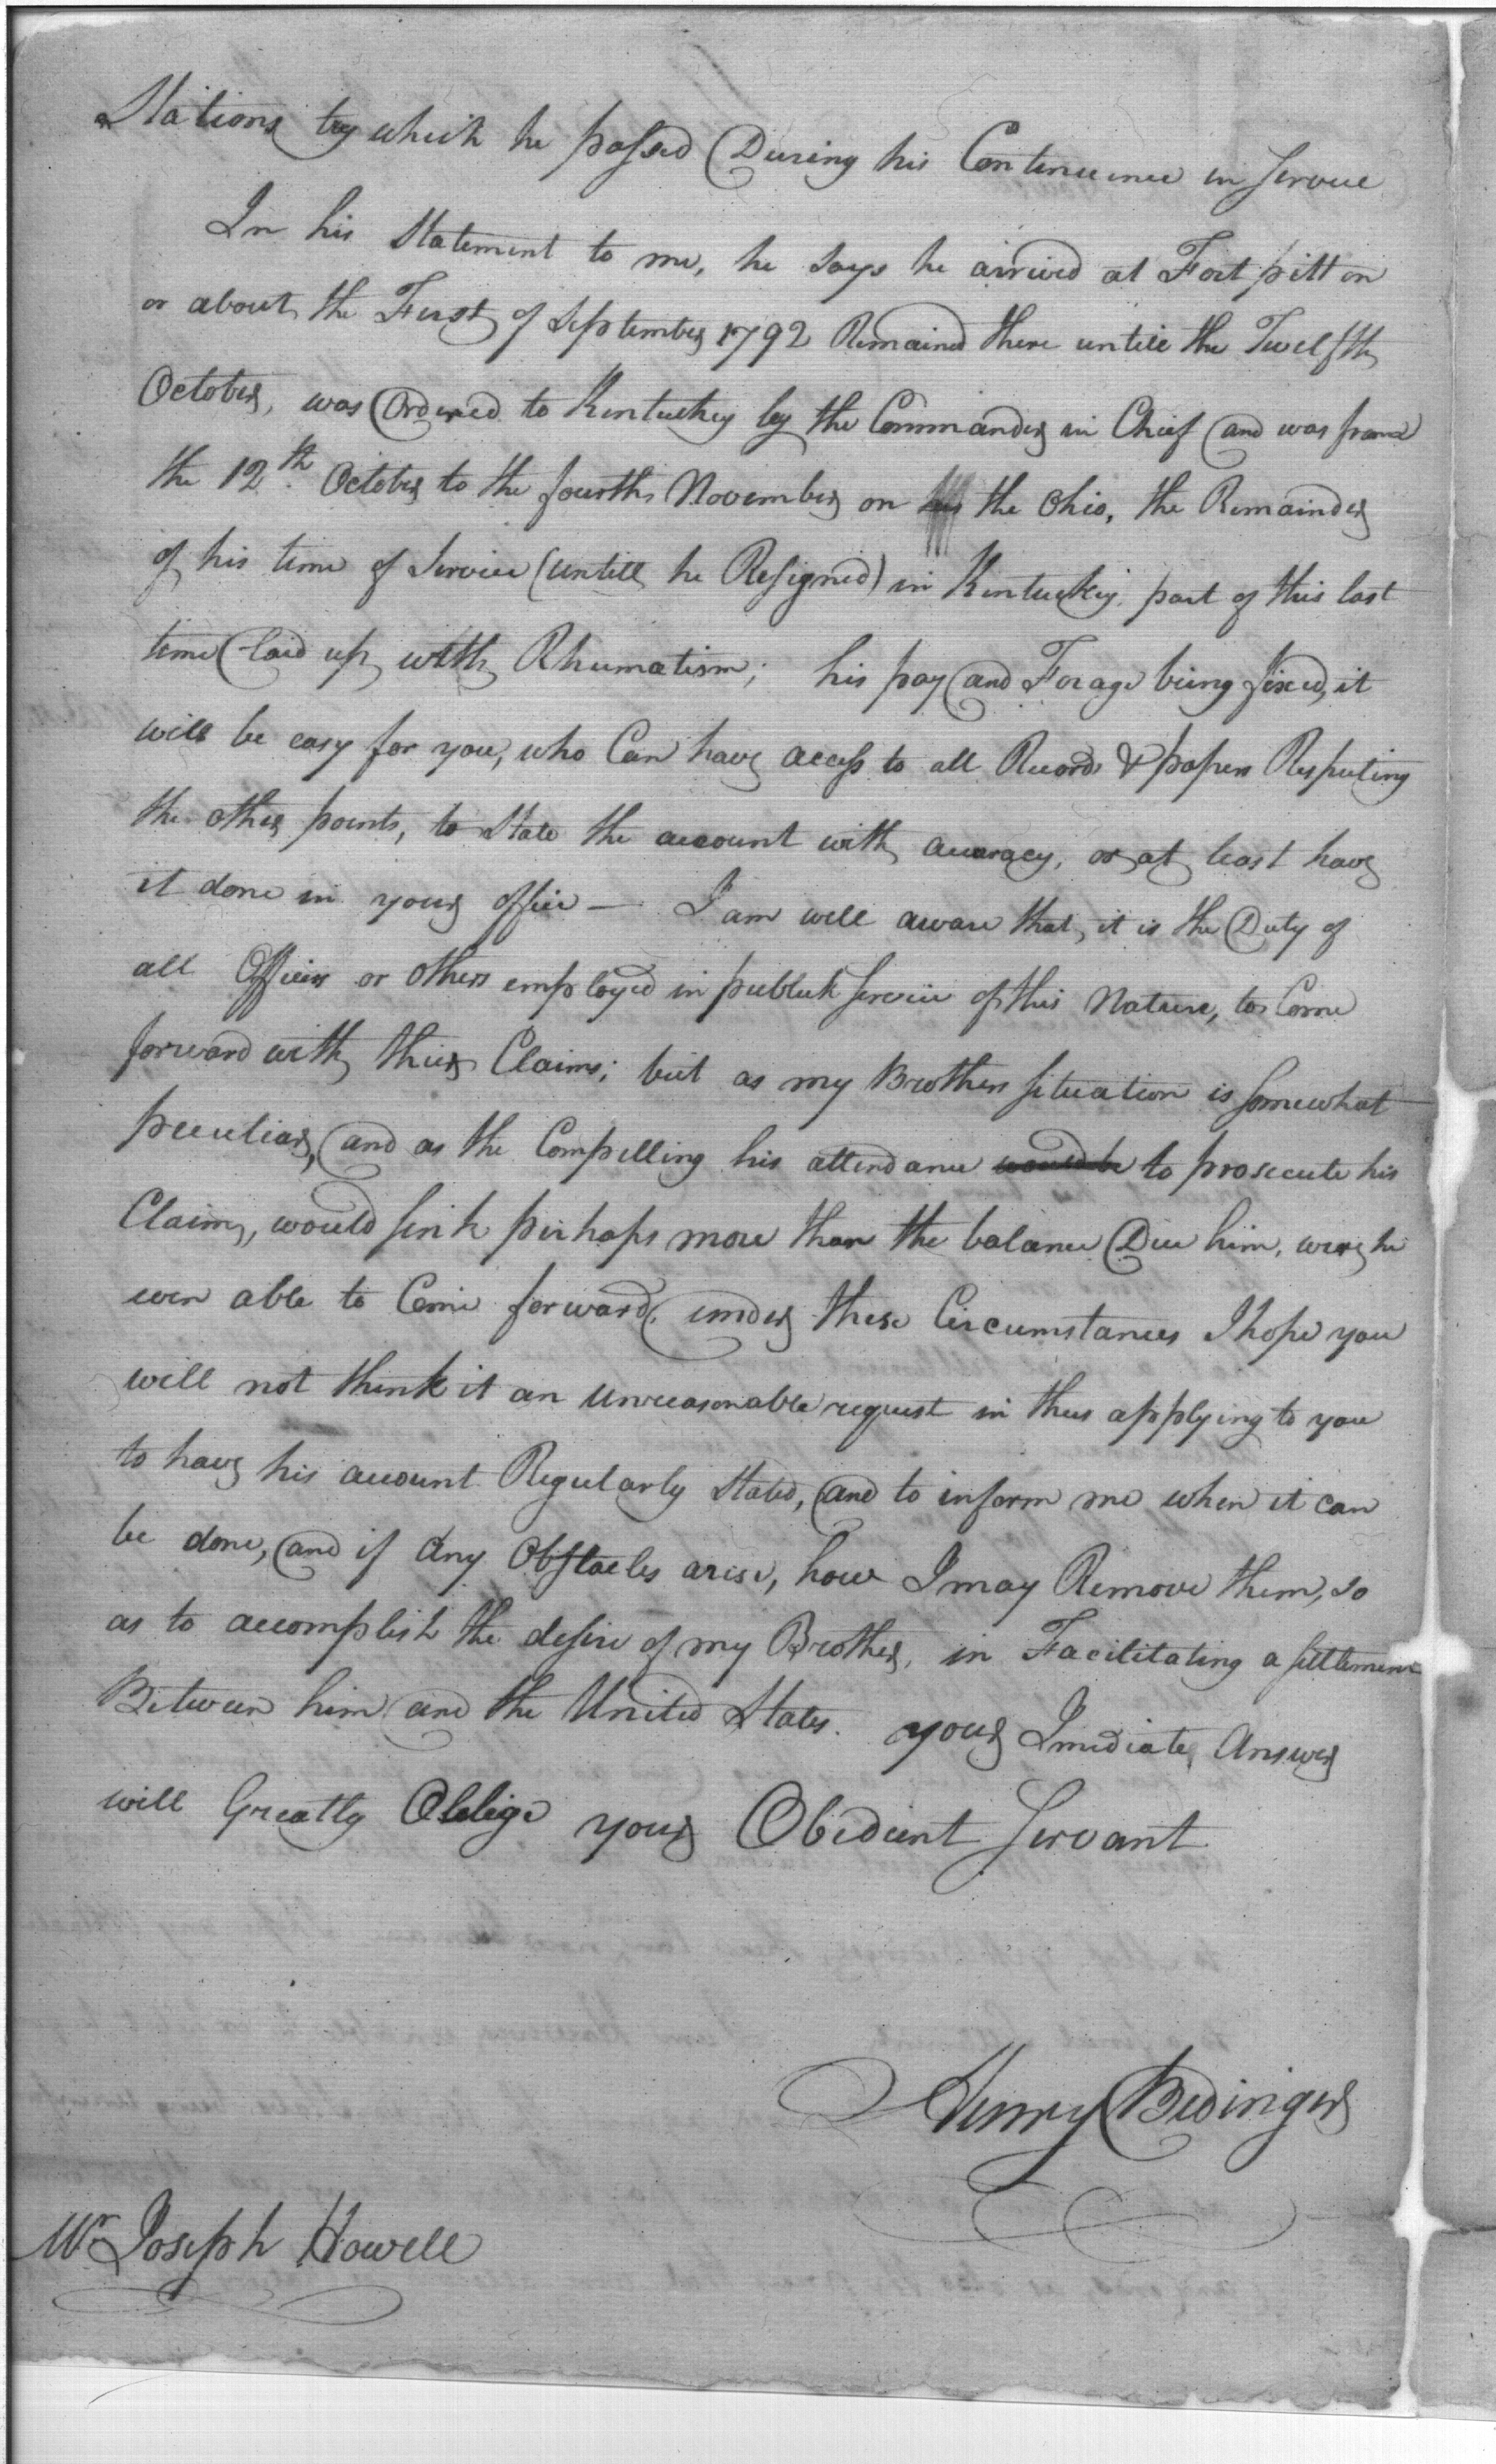 Stations by which he passed During his Continuance in Service
In his Statement to me, he says he arrived at Fort pitt on
or about the First of September 1792 Remained there untill the Twelfth
October, was Ordered to Kentuckey by the Commander in Chief and was from
the 12th. October to the fourth November on the Ohio, the Remainder
of his time of Service (untill he Resigned) in Kentuckey. part of this last
time laid up with Rhumatism; his pay and Forage being fixed, it
will be easy for you, who Can have access to all Records & papers Respecting
the other points, to State the account with accuracy, or at least have
it done in your office — I am well aware that, it is the Duty of
all Officers or others employed in publick Service of this Nature, to Come
forward with thier Claims; but as my Brothers Situation is Somewhat
peculiar, and as the Compelling his attendance would be to prosecute his
Claim, would Sink perhaps more than the balance Due him, were he
even able to Come forward, under these Circumstances I hope you
will not think it an unreasonable request in thus applying to you
to have his account Regularly Stated, and to inform me when it can
be done, and if any Obstacles arise, how I may Remove them, so
as to accomplish the desire of my Brother, in Facilitating a Settlement
Between him and the United States. your Imediate Answer
will Greatly Oblige your Obedient Servant
Henry Bedinger
Mr Joseph Howell